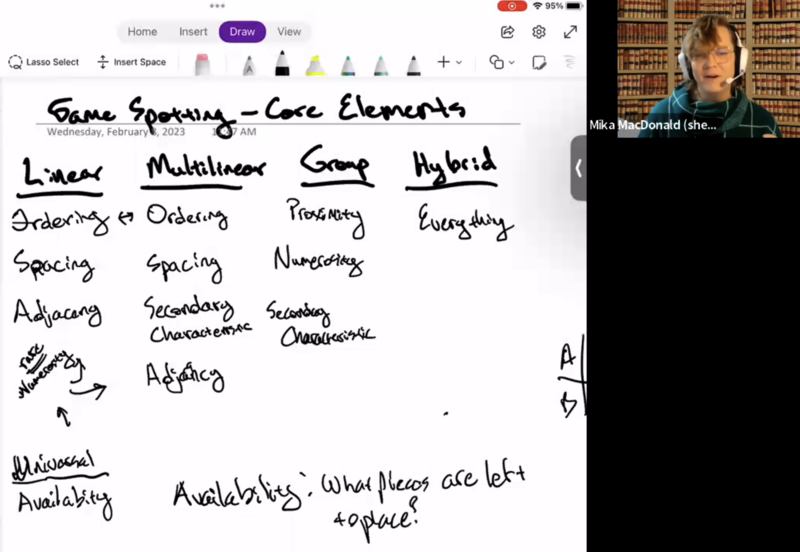 95%
Home Insert Draw View
Lasso Select Insert Space
Game Spotting - Core Elements
Wednesday, February 8, 2023 AM
Mika MacDonald (she...
Linear Multilinear Group Hybrid
Ordering ↔ Ordering Proximity Everything
Spacing Spacing Numerosity
Adjacency Secondary Characteristic Secondary Characteristic
rare Numerosity
Adjacency
A
B
Universal
Availability
Availability: What pieces are left
to place?